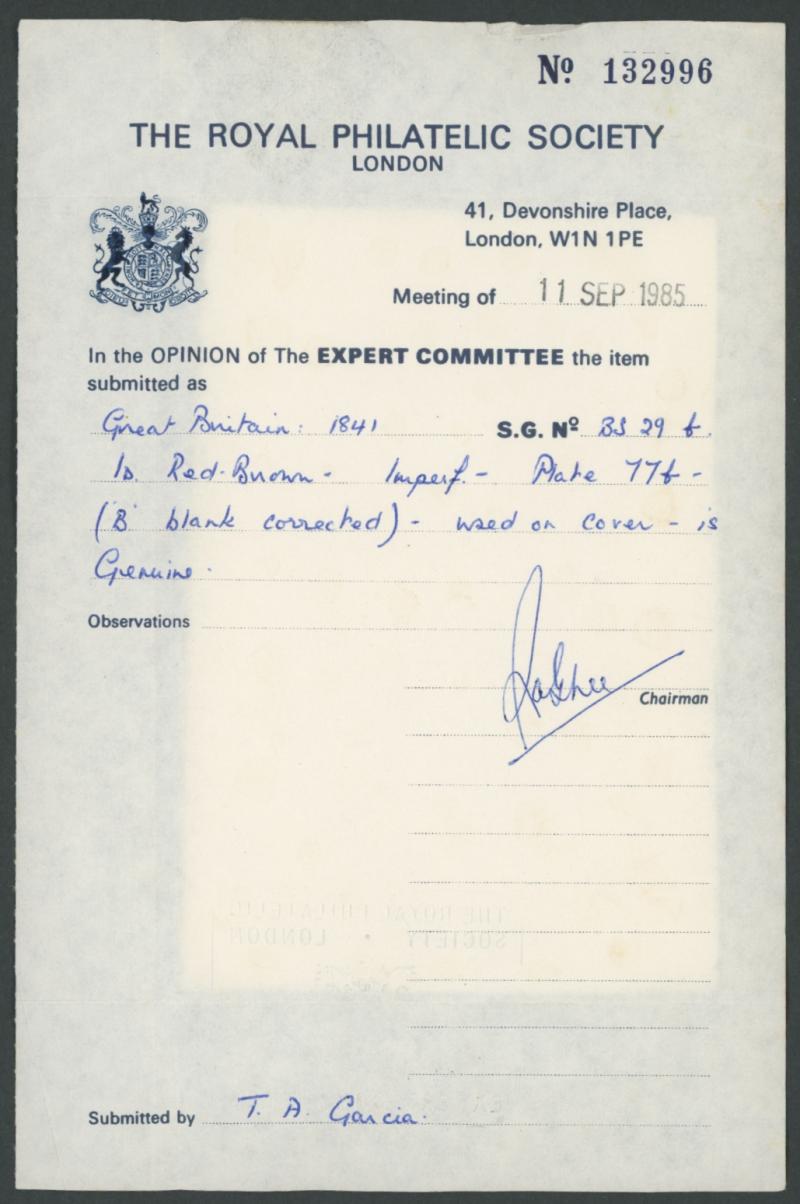 Nº 132996
THE ROYAL PHILATELIC SOCIETY
LONDON
41, Devonshire Place,
London, W1N 1PE
Meeting of 11 SEP 1985
In the OPINION of The EXPERT COMMITTEE the item
submitted as
Great Britain: 1841 S.G. Nº BS 29 b.
1d. Red-Brown - Imperf. - Plate 77b -
('B' blank corrected) - used on cover - is
Genuine.
Observations
Chairman
THE ROYAL PHILATELIC
SOCIETY • LONDON
Submitted by T. A. Garcia.